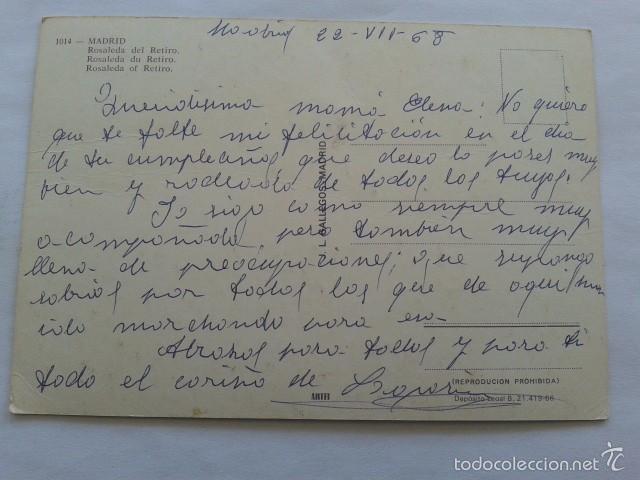 1014 — MADRID
Rosaleda del Retiro.
Rosaleda du Retiro.
Rosaleda of Retiro.
Madrid 22-VII-68
Queridisima mamá Elena: No quiero
que te falte mi felicitación en el dia
de tu cumpleaños que deseo lo pases muy
bien y rodeada de todos los tuyos.
Yo sigo como siempre muy
acompañada, pero también muy
llena de preocupaciones; que supongo
sabrás por todos los que de aqui
marchando para
Abrazos para todos y para ti
todo el cariño de
L. GALLEGOS-MADRID
(REPRODUCION PROHIBIDA)
ARTES
Depósito Legal B. 21.419-66
todocoleccion.net